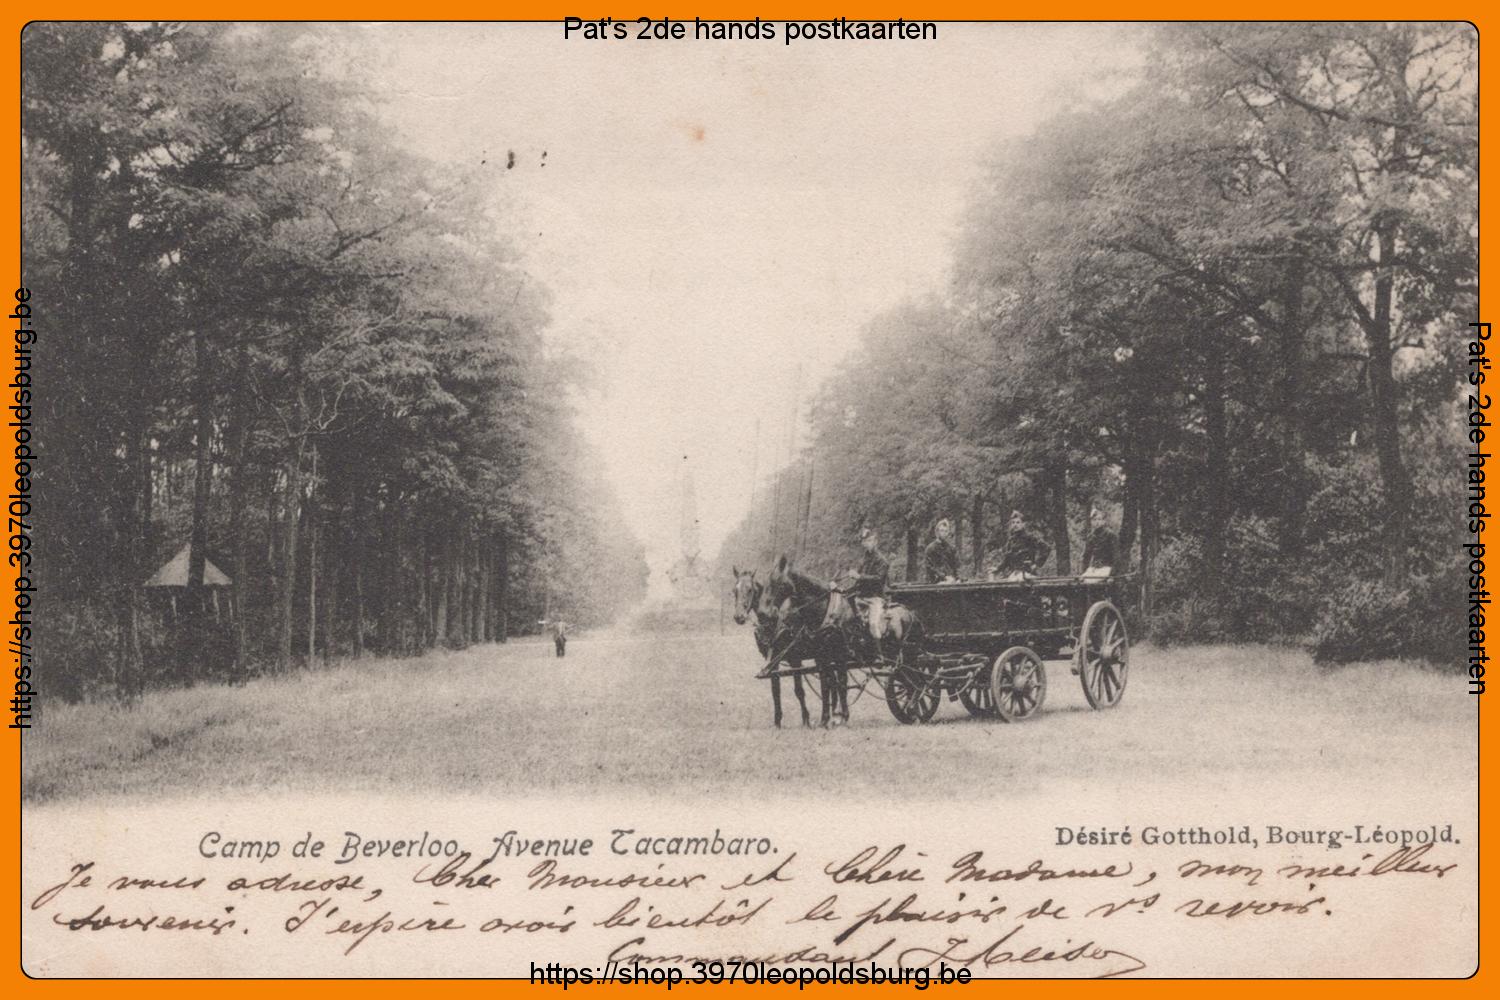 Pat's 2de hands postkaarten
https://shop.3970leopoldsburg.be
Pat's 2de hands postkaarten
Camp de Beverloo. Avenue Tacambaro.
Désiré Gotthold, Bourg-Léopold.
Je vous adresse, Cher Monsieur et Chère Madame, mon meilleur
souvenir. J'espère avoir bientôt le plaisir de vs revoir.
Commandant
https://shop.3970leopoldsburg.be